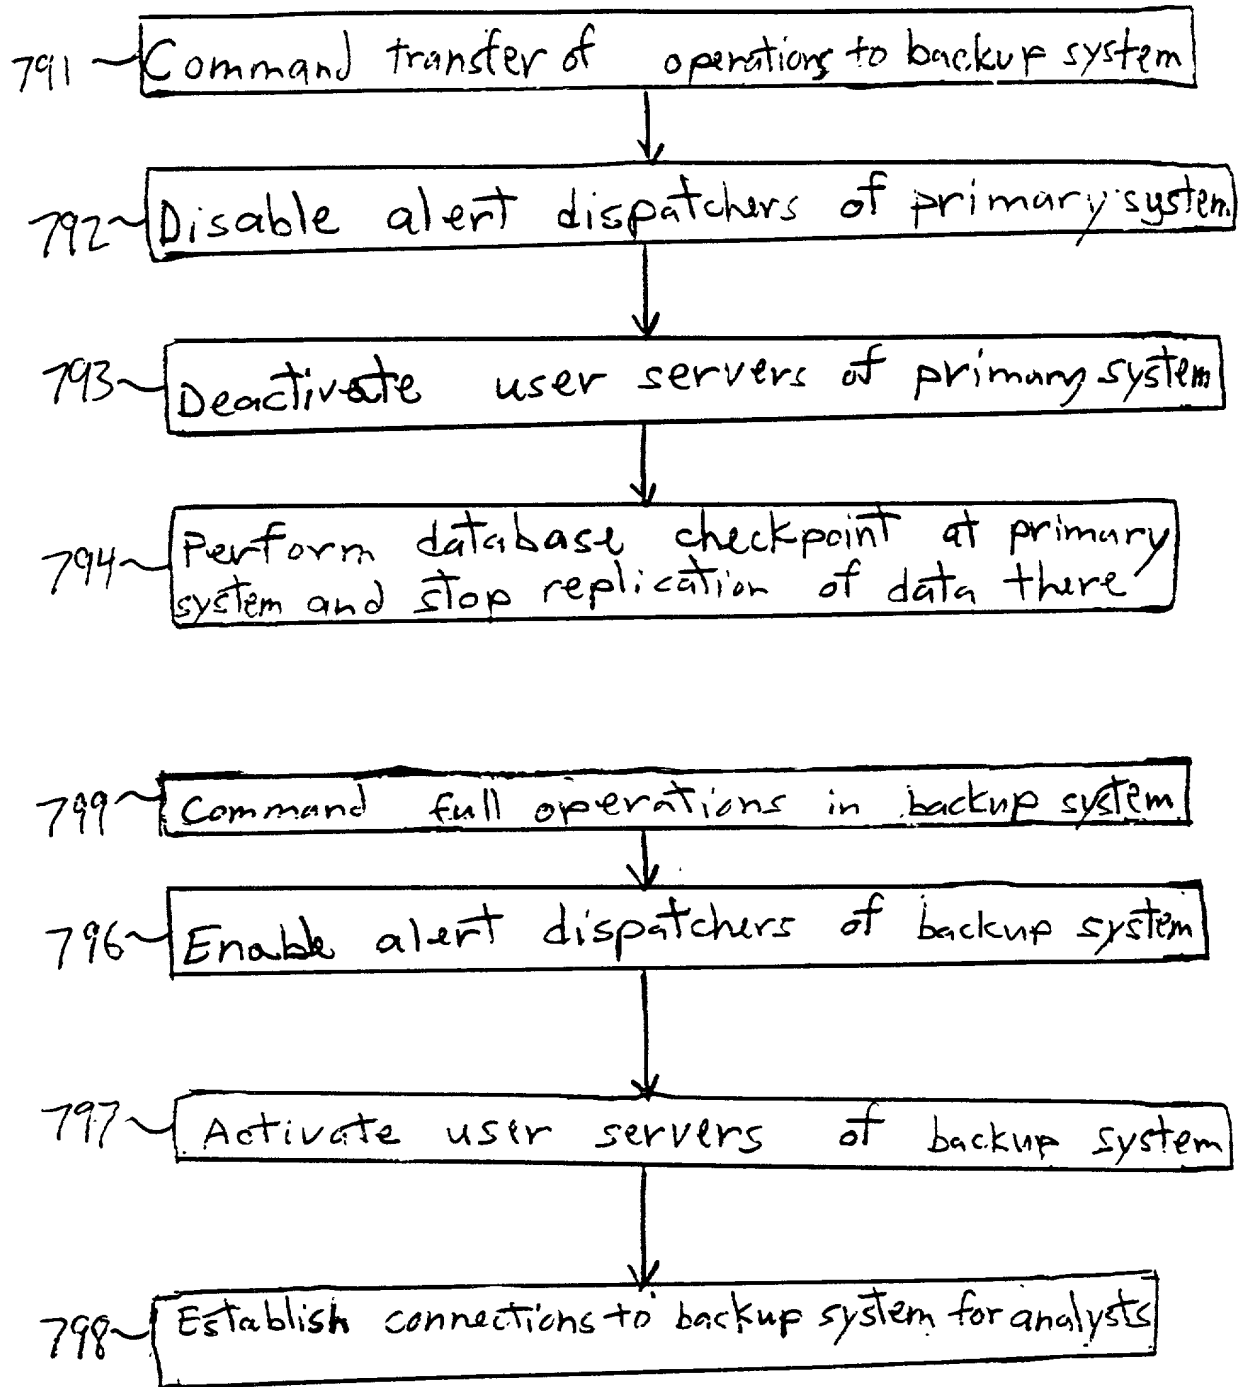 791 Command transfer of operations to backup system
792 Disable alert dispatchers of primary system
793 Deactivate user servers of primary system
794 Perform database checkpoint at primary
system and stop replication of data there
799 Command full operations in backup system
796 Enable alert dispatchers of backup system
797 Activate user servers of backup system
798 Establish connections to backup system for analysts